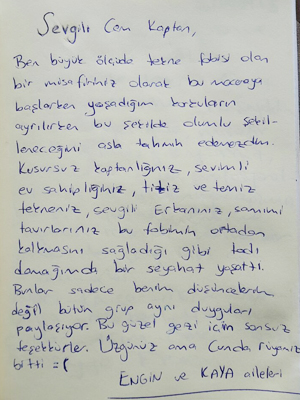 Sevgili Cem Kaptan,
Ben büyük ölçüde tekne fobisi olan
bir misafiriniz olarak bu maceraya
başlarken yaşadığım korkuların
ayrılırken bu şekilde olumlu şekil-
leneceğini asla tahmin edemezdim.
Kusursuz kaptanlığınız, sevimli
ev sahipliğiniz, titiz ve temiz
tekneniz, sevgili Erkanınız, samimi
tavırlarınız bu fobimin ortadan
kalkmasını sağladığı gibi tadı
damağımda bir seyahat yaşattı.
Bunlar sadece benim düşüncelerim
değil bütün grup aynı duyguları
paylaşıyor. Bu güzel gezi için sonsuz
teşekkürler. Üzgünüz ama Cunda rüyamız
bitti =(
ENGİN ve KAYA aileleri